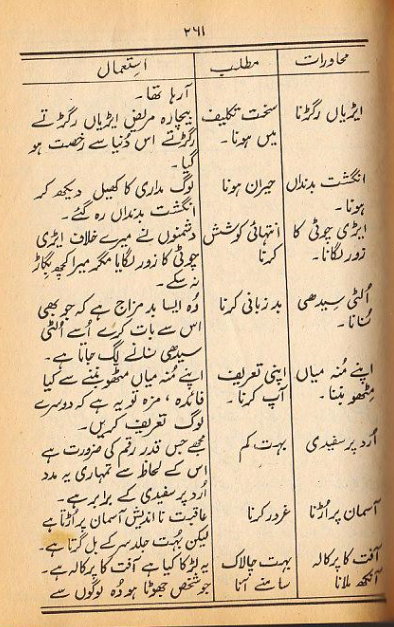 ۲۶۱
محاورات مطلب استعمال
آرہا تھا۔
ایڑیاں رگڑنا سخت تکلیف بیچارہ مریض ایڑیاں رگڑتے
میں ہونا۔ رگڑتے اس دُنیا سے رخصت ہو
گیا۔
انگشت بدنداں حیران ہونا لوگ مداری کا کھیل دیکھ کر
ہونا۔ انگشت بدنداں رہ گئے۔
ایڑی چوٹی کا انتہائی کوشش دشمنوں نے میرے خلاف ایڑی
زور لگانا۔ کرنا چوٹی کا زور لگایا مگر میرا کچھ بگاڑ
نہ سکے۔
اُلٹی سیدھی بد زبانی کرنا وُہ ایسا بد مزاج ہے کہ جو بھی
سُنانا۔ اس سے بات کرے اُسے اُلٹی
سیدھی سنانے لگ جاتا ہے۔
اپنے مُنہ میاں اپنی تعریف اپنے مُنہ میاں مٹھو بننے سے کیا
مِٹھو بننا۔ آپ کرنا۔ فائدہ، مزہ تو یہ ہے کہ دوسرے
لوگ تعریف کریں۔
اُرد پر سفیدی بہت کم مجھے جس قدر رقم کی ضرورت ہے
اس کے لحاظ سے تمہاری یہ مدد
اُرد پر سفیدی کے برابر ہے۔
آسمان پر اُڑنا غرور کرنا عاقبت نا اندیش آسمان پر اُڑتا ہے
لیکن بہُت جلد سر کے بل گرتا ہے۔
آفت کا پرکالہ بہت چالاک یہ لڑکا کیا ہے آفت کا پرکالہ ہے۔
آنکھ ملانا سامنے آنا جو شخص جھوٹا ہو وُہ لوگوں سے